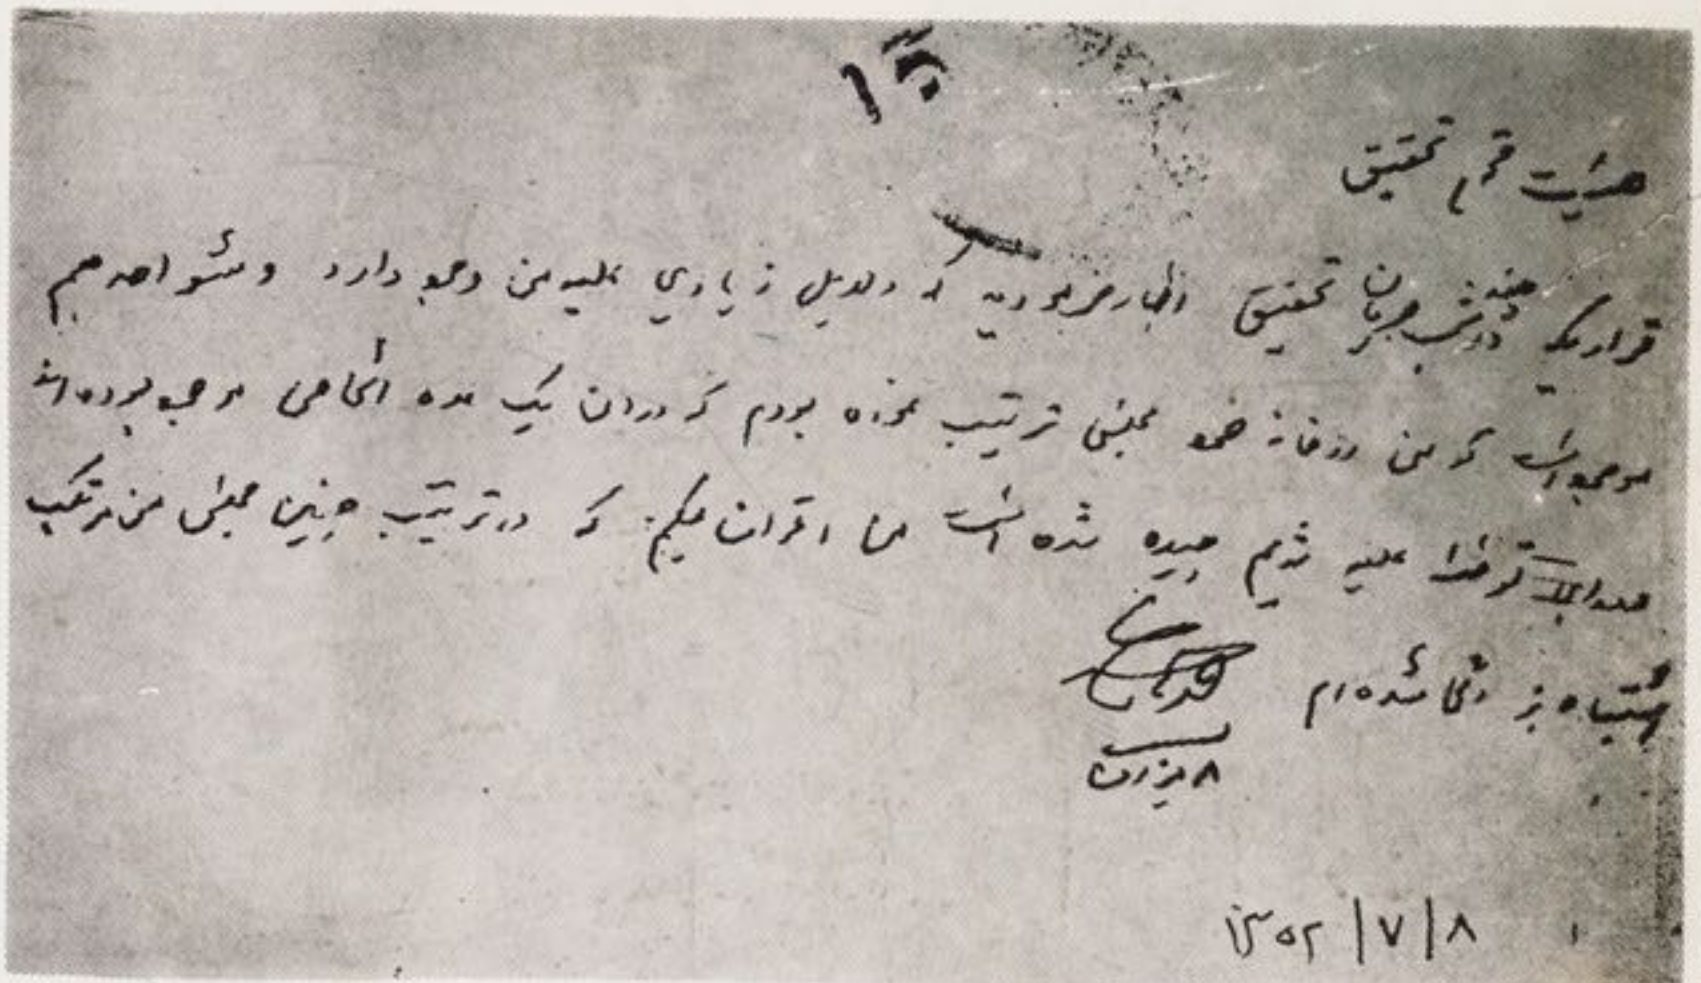 هیئت محترم تحقیق
قراریکه در شب جریان تحقیق اظهار فرمودید که دلایل زیادی علیه من وجود دارد و شواهد هم
موجود است که من در خانه خود مجلس ترتیب نموده بودم که در آن یک عده اشخاص موجود بوده اند
علیه چیده شده است من اقرار میکنم که در ترتیب چنین مجلس من مرتکب
اشتباه بزرگی شده ام
۸ میزان
۸ / ۷ / ۱۳۵۲